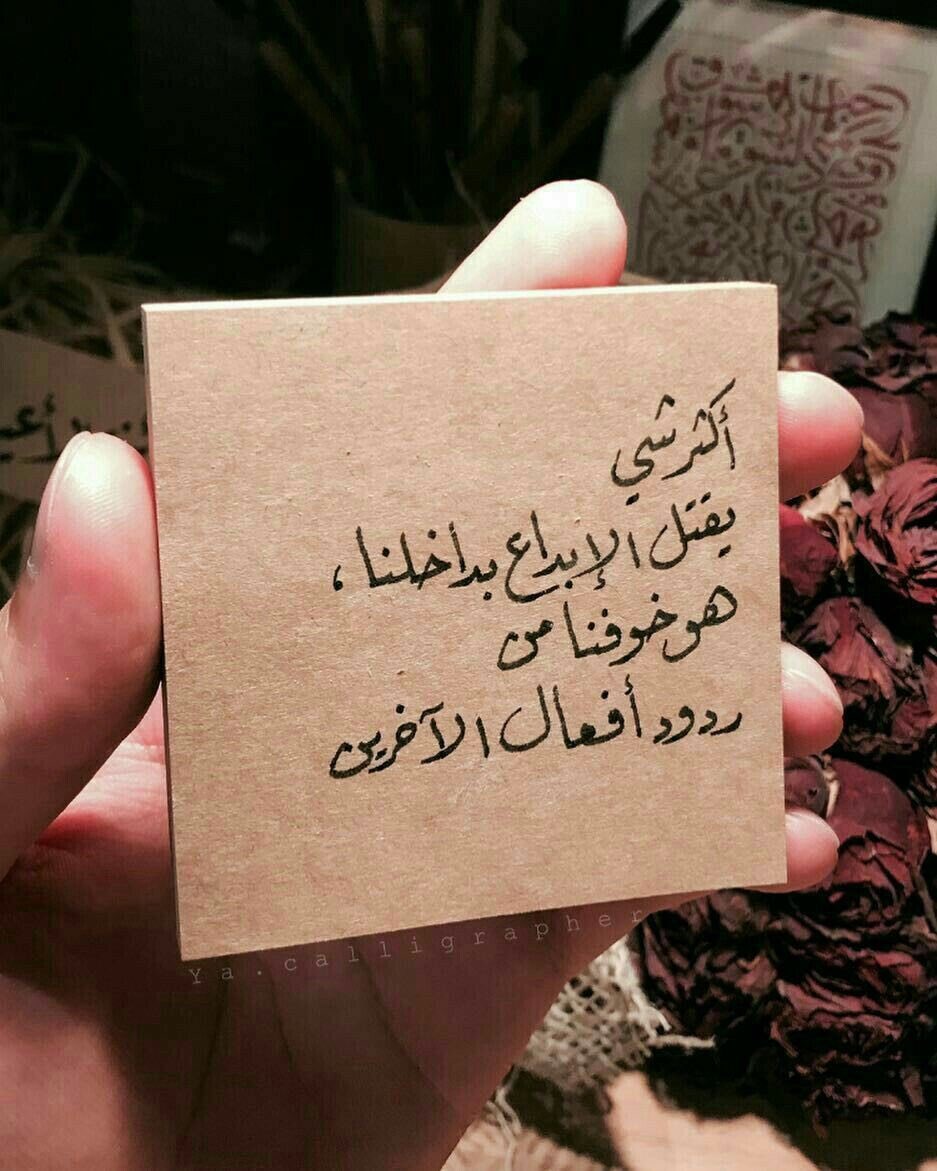 أكثر شي
يقتل الإبداع بداخلنا ،
هو خوفنا من
ردود أفعال الآخرين
Ya.calligrapher